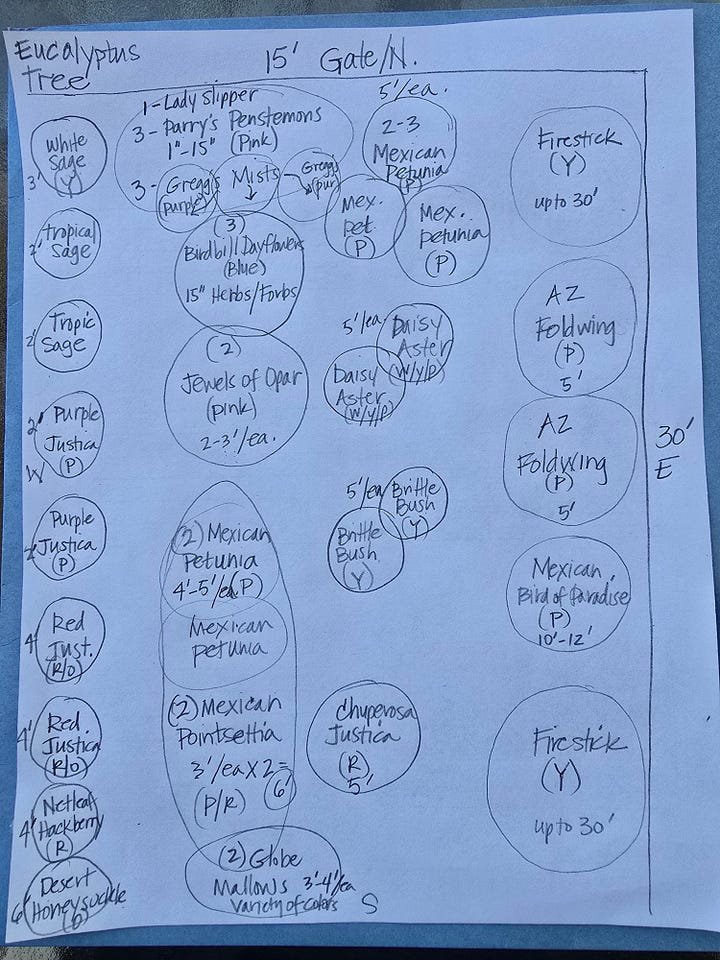 Eucalyptus
Tree
15' Gate/N.
1 - Lady Slipper
3 - Parry's Penstemons
1"-15" (Pink)
3 - Gregg's
(purple)
Mists
↓
Gregg's
(pur)
5'/ea.
2-3
Mexican
Petunia
(P)
Mex.
Pet.
(P)
Mex.
petunia
(P)
Firestick
(Y)
up to 30'
White
Sage
(Y)
3'
Tropical
Sage
2'
Tropic
Sage
2'
Purple
Justica
(P)
2'
W
Purple
Justica
(P)
2'
Red
Just.
(R/O)
4'
Red.
Justica
(R/O)
4'
Netleaf
Hackberry
(R)
4'
Desert
Honeysuckle
6'
(3)
Birdbill Dayflowers
(Blue)
15" Herbs/Forbs
(2)
Jewels of Opar
(pink)
2-3'/ea.
(2) Mexican
Petunia
4'-5'/ea(P)
Mexican
petunia
(2) Mexican
Pointsettia
3'/ea x 2 =
6'
(P/R)
(2) Globe
Mallows 3'-4'/ea
Variety of colors
S
5'/ea.
Daisy
Aster
(W/Y/P)
Daisy
Aster
(W/Y/P)
5'/ea
Brittle
Bush
(Y)
Brittle
Bush
(Y)
Chuperosa
Justica
(R)
5'
AZ
Foldwing
(P)
5'
AZ
Foldwing
(P)
5'
30'
E
Mexican
Bird of Paradise
(P)
10'-12'
Firestick
(Y)
up to 30'